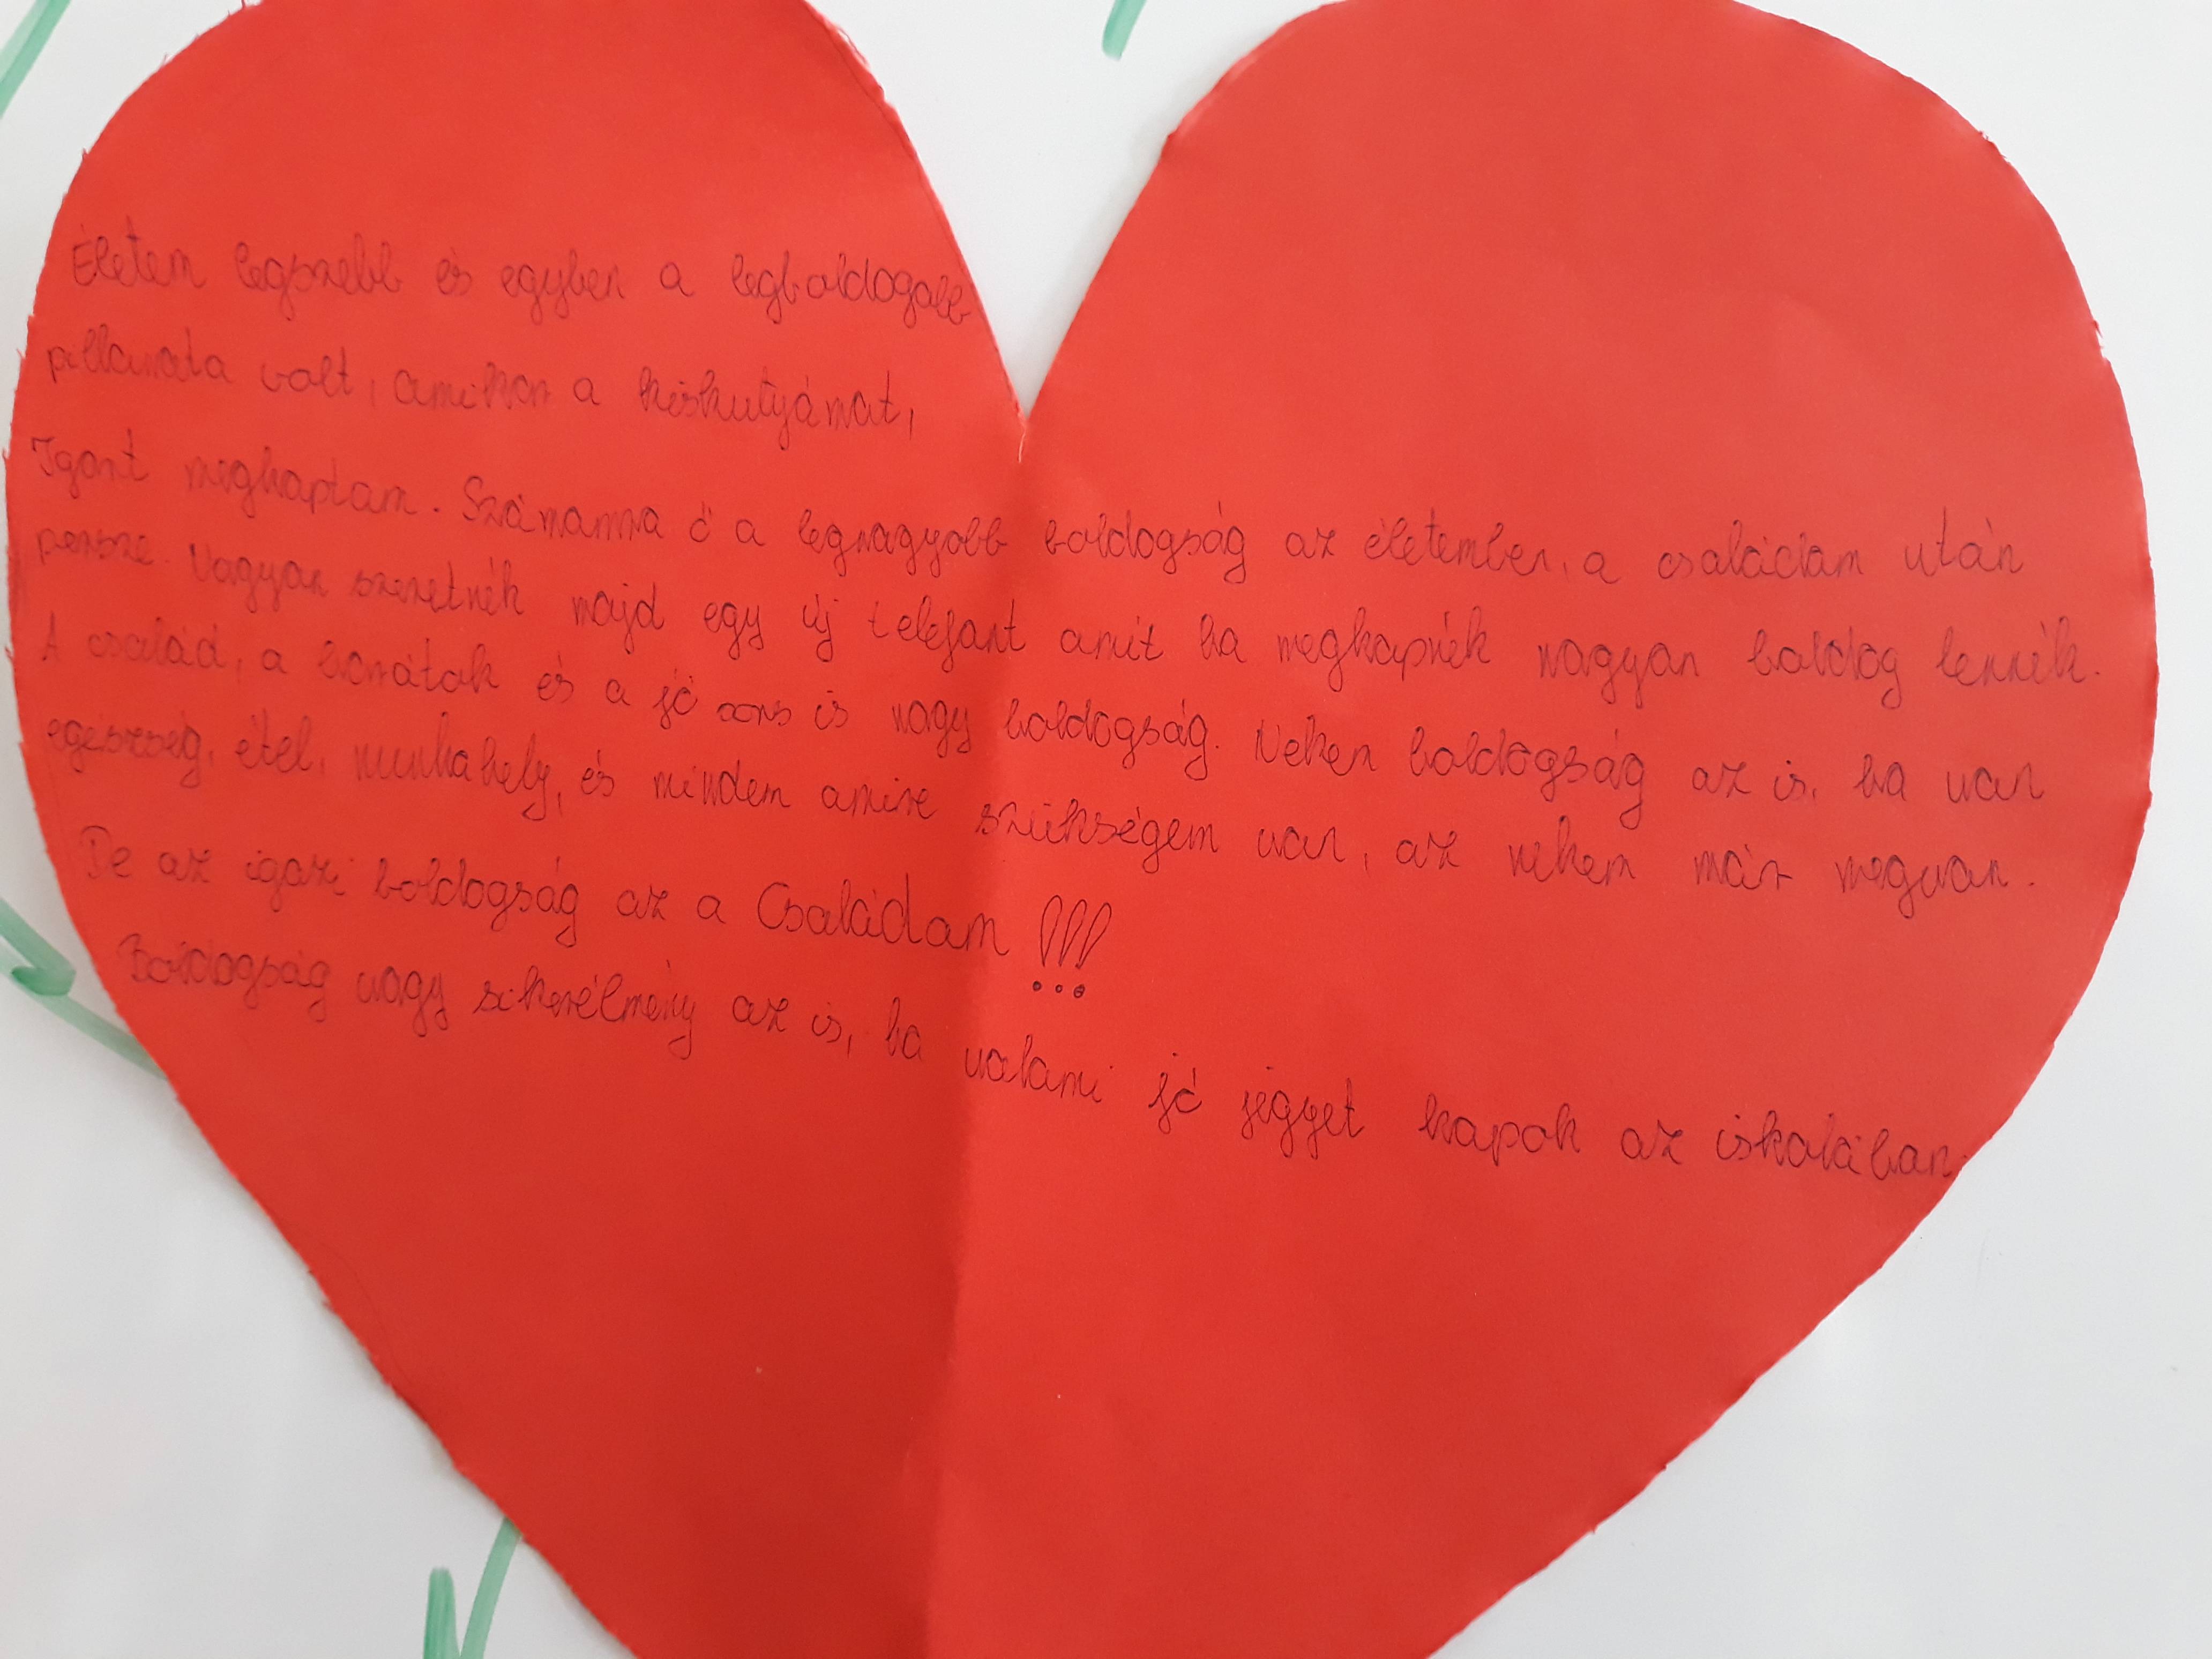 Életem legszebb és egyben a legboldogabb
pillanata volt, amikor a kiskutyámat,
Igort megkaptam. Számomra ő a legnagyobb boldogság az életemben, a családom után
persze. Nagyon szeretnék majd egy új telefont amit ha megkapnék nagyon boldog lennék.
A család, a barátok és a jó sors is nagy boldogság. Nekem boldogság az is, ha van
egészség, étel, munkahely, és minden amire szükségem van, az nekem már megvan.
De az igazi boldogság az a Családom !!!
Boldogság vagy sikerélmény az is, ha valami jó jegyet kapok az iskolában.